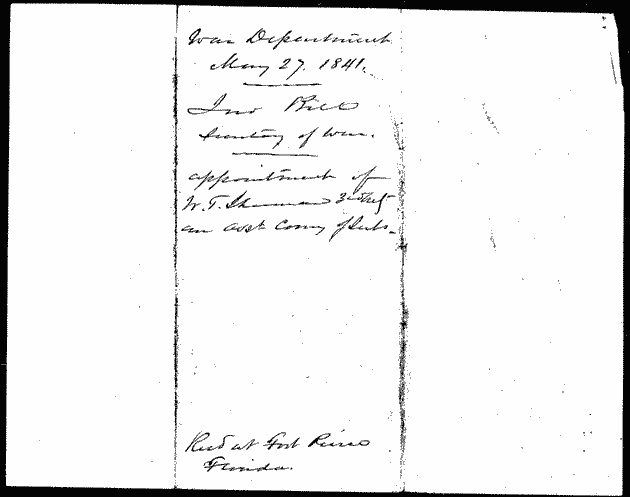 War Department
May 27. 1841.
Jno Bell
Secretary of War.
appointment of
W. T. Sherman 3rd Arty
an asst Comy of Subs.
Recd at Fort Pierce
Florida.